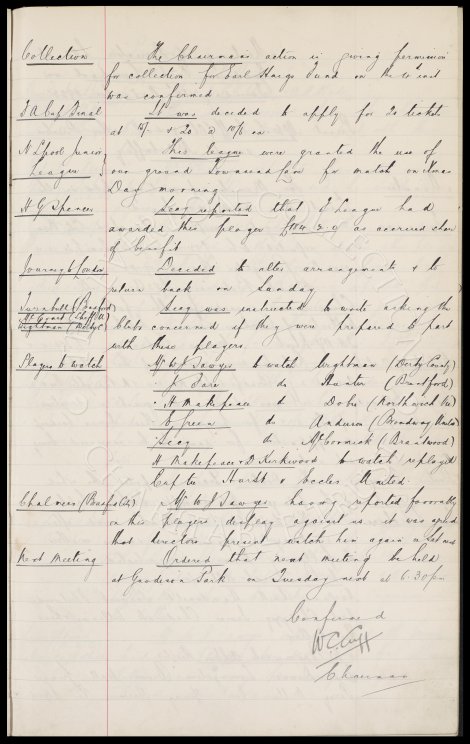 Collection The Chairmans action in giving permission
for collection for Earl Haigs Fund on the 10 inst
was confirmed
F A Cup Final It was decided to apply for 20 tickets
at & 20 @ 10/6 ea
N L'pool Junior This league were granted the use of
League our ground Townsend Lane for match on Xmas
Day morning
H G Spencer Secy reported that F League had
awarded this player as accrued share
of benefit
Journey to London Decided to alter arrangements & to
return back on Sunday
Turnbull (Bradford) Secy was instructed to write asking the
(Sheff U) clubs concerned if they were prepared to part
Wightman (Derby C) with these players
Players to watch Mr W J Sawyer to watch Wightman (Derby County)
" J do Hunter (Brentford)
" H Makepeace to Dobie (Northwich Vic)
C Green do Anderson (Broadway United)
Secy do McCormick (Brantwood)
H Makepeace & D Kirkwood to watch replayed
Cup tie Hurst v Eccles United.
Chalmers (Bradford City) Mr W J Sawyer having reported favorably
on this players display against us it was agreed
that directors present watch him again on Sat next
Next Meeting Ordered that next meeting be held
at Goodison Park on Tuesday next at 6.30pm
Confirmed
W C Cuff
Chairman